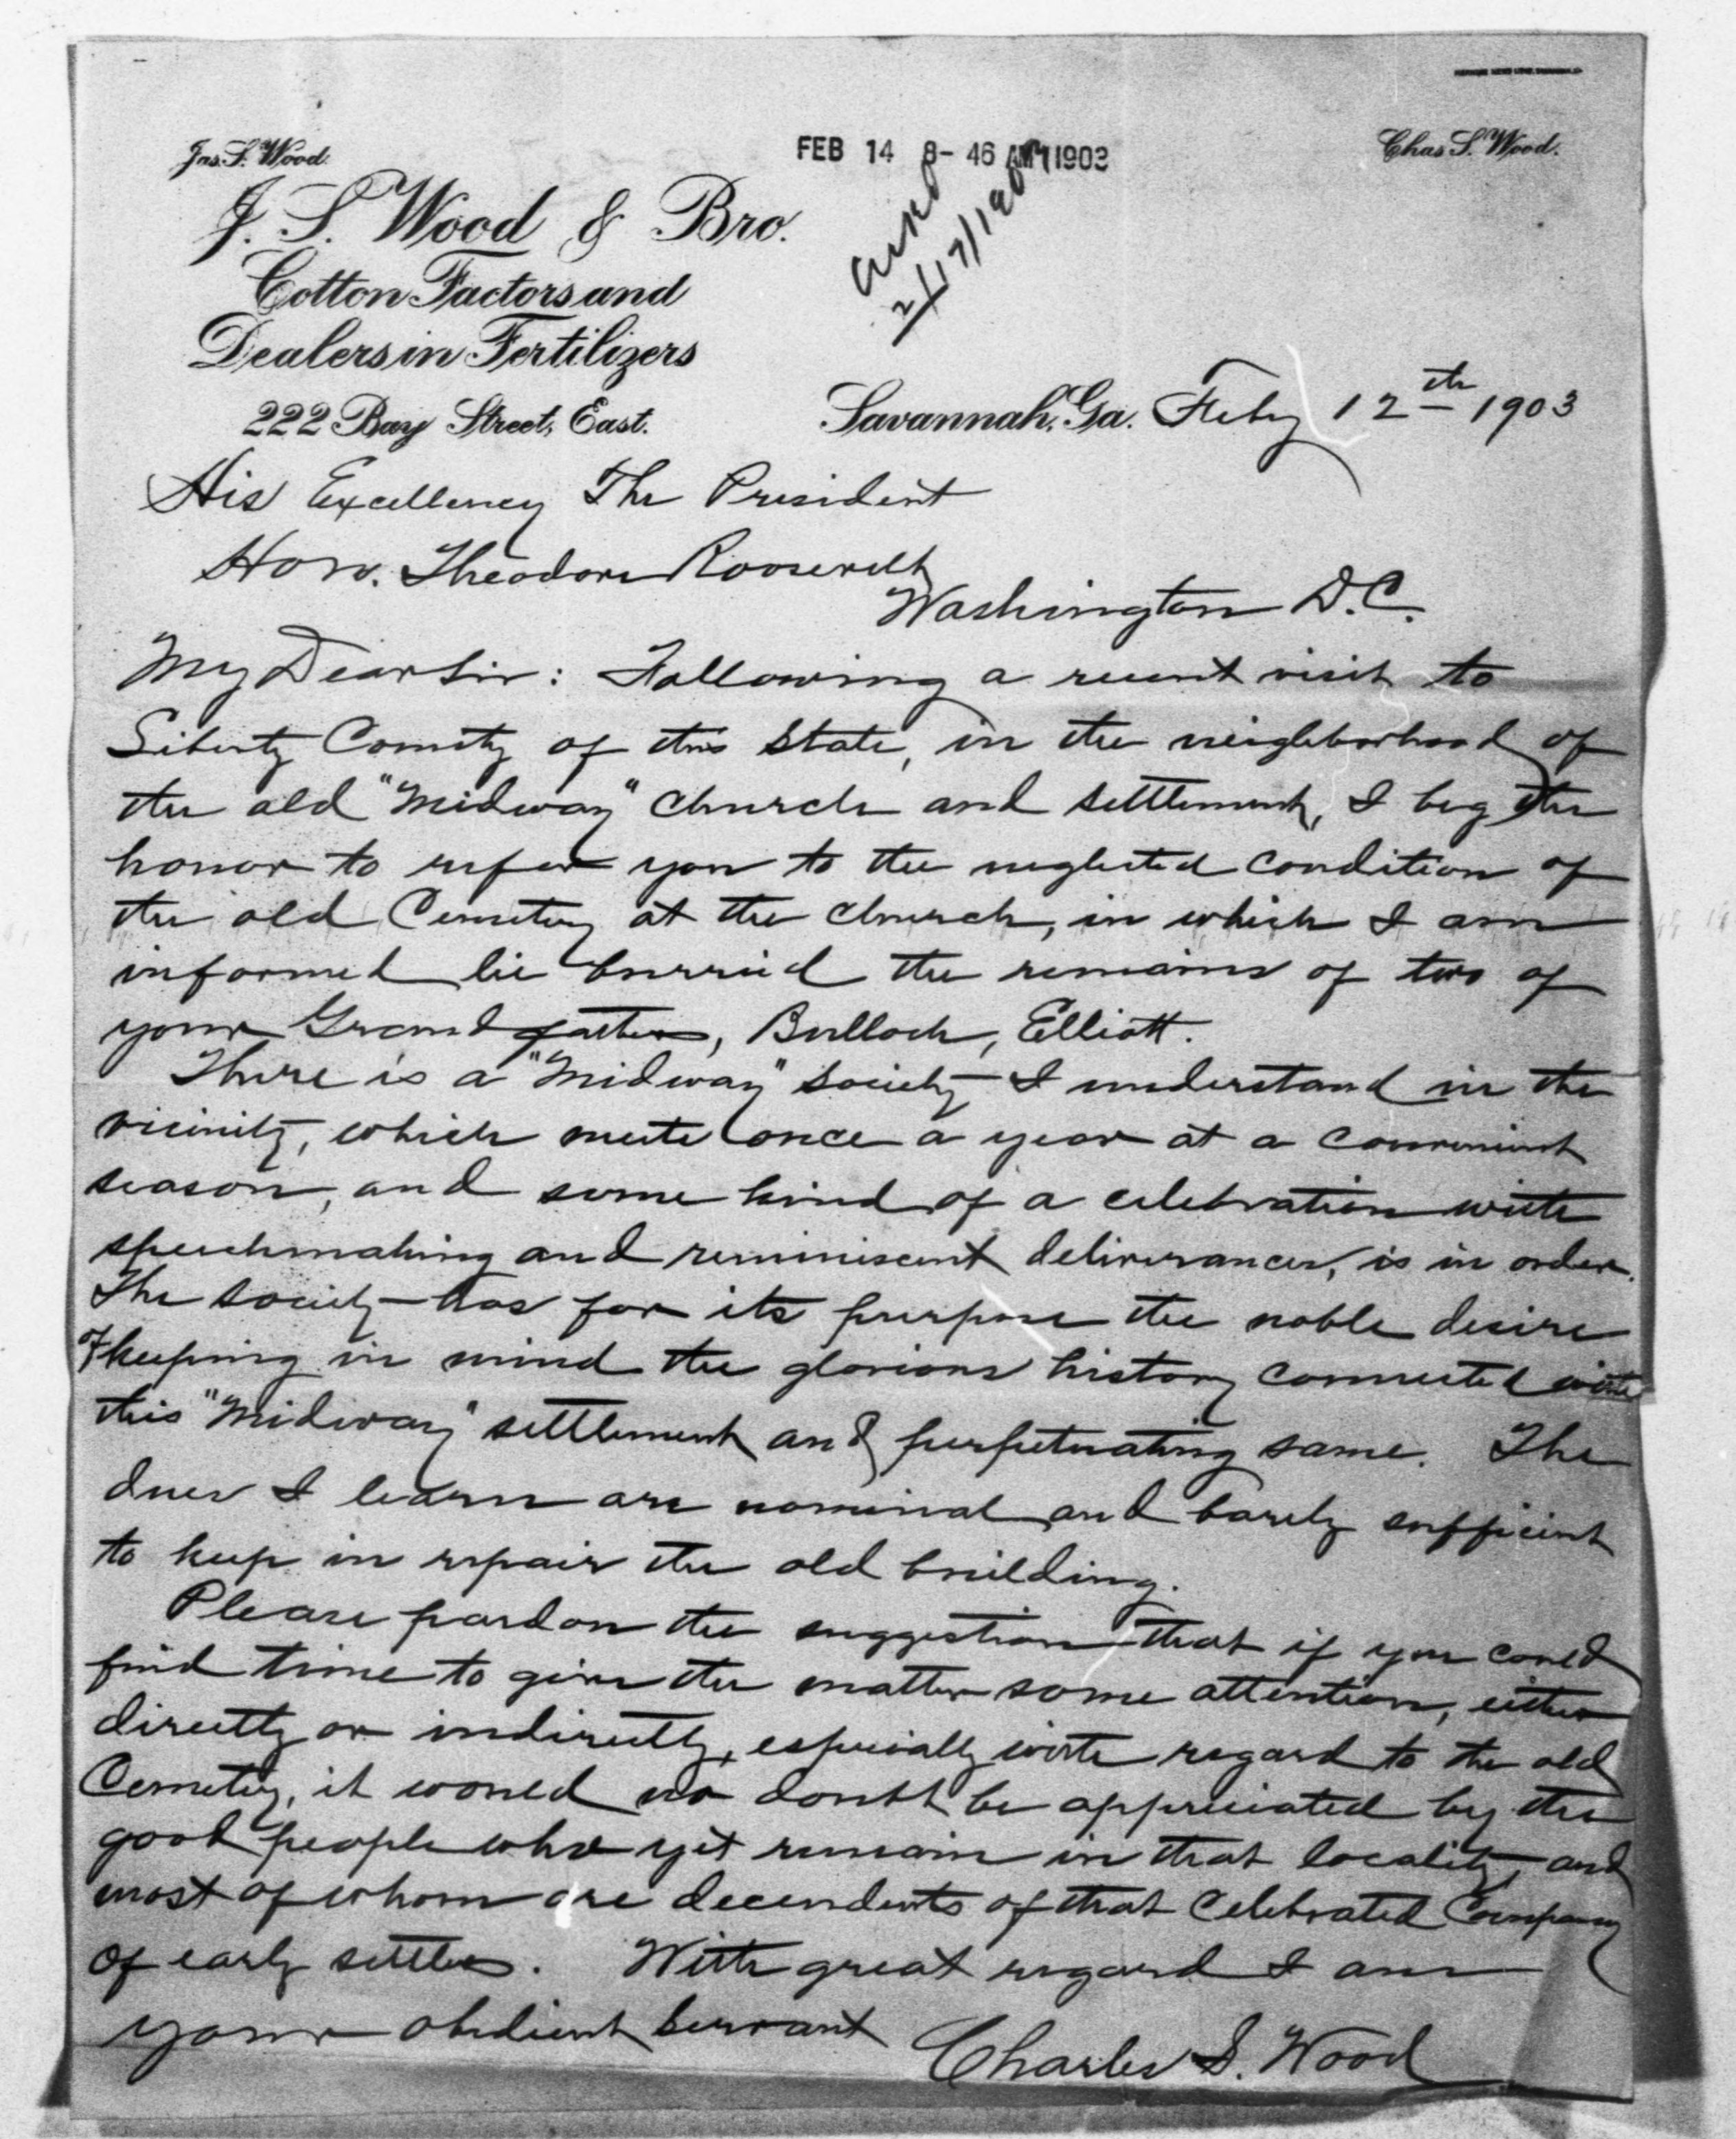 Jas. S. Wood.
FEB 14 8-46 AM 1903
Chas S. Wood.
J. S. Wood & Bro.
Cotton Factors and
Dealers in Fertilizers
222 Bay Street, East.
ackd
2/17/1903
Savannah, Ga. Feby 12th 1903
His Excellency The President
Hon. Theodore Roosevelt
Washington D.C.
My Dear Sir: Following a recent visit to
Liberty County of this State, in the neighborhood of
the old "Midway" church and settlement, I beg the
honor to refer you to the neglected condition of
the old Cemetery at the church, in which I am
informed lie burried the remains of two of
your Grandfathers, Bulloch, Elliott.
There is a "Midway" society I understand in the
vicinity, which meets once a year at a convenient
season, and some kind of a celebration with
speechmaking and reminiscent deliverances, is in order.
The society has for its purpose the noble desire
of keeping in mind the glorious history connected with
this "Midway" settlement and perpetuating same. The
dues I learn are nominal and barely sufficient
to keep in repair the old building.
Please pardon the suggestion that if you could
find time to give the matter some attention, either
directly or indirectly, especially with regard to the old
Cemetery, it would no doubt be appreciated by the
good people who yet remain in that locality, and
most of whom are decendents of that celebrated Company
of early settlers. With great regard I am
your obedient servant
Charles S. Wood